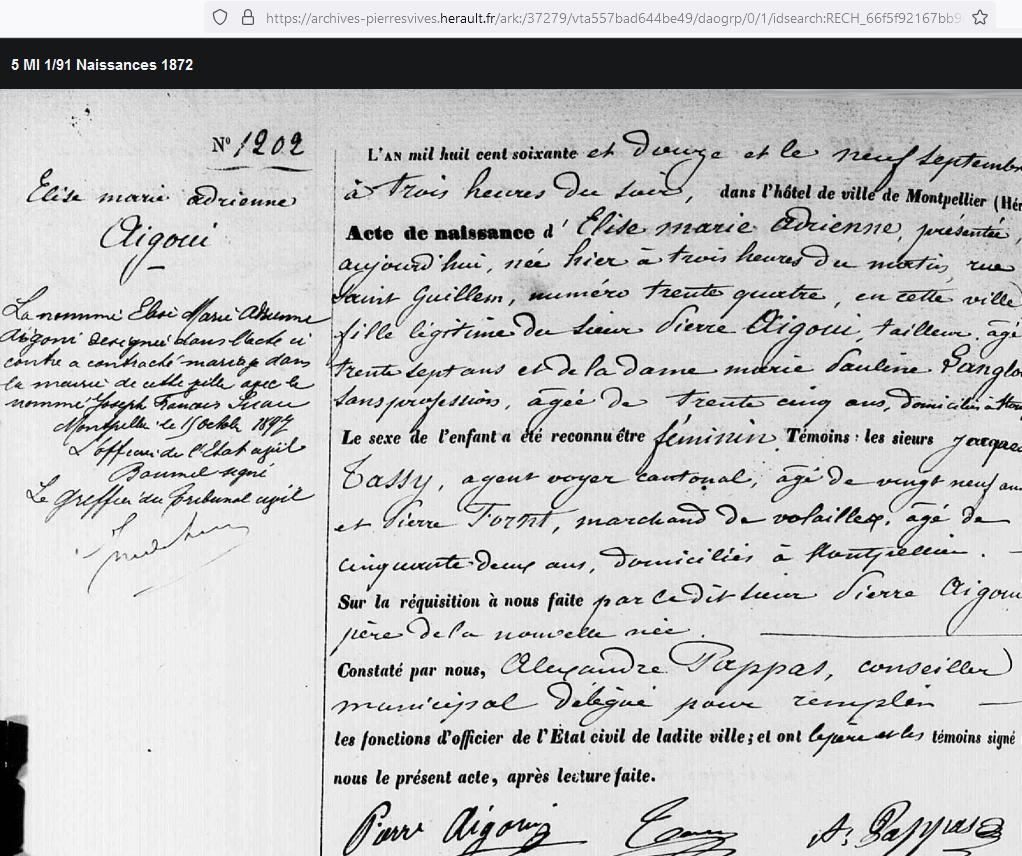 https://archives-pierresvives.herault.fr/ark:/37279/vta557bad644be49/daogrp/0/1/idsearch:RECH_66f5f92167bb9
5 MI 1/91 Naissances 1872
N° 1202
Elise marie adrienne
Aigoui
La nommé Elise Marie Adrienne
Aigoui designée dans l'acte ci
contre a contracté mariage dans
la mairie de cette ville avec le
nommé Joseph François
Montpellier le octobre 1897
L'officier de l'Etat civil
Baumel signé
Le Greffier du Tribunal civil
L'AN mil huit cent soixante et douze et le neuf septembre
à trois heures du soir, dans l'hôtel de ville de Montpellier (Hér
Acte de naissance d' Elise marie adrienne, présentée,
aujourd'hui, née hier à trois heures du matin, rue
saint Guillem, numéro trente quatre, en cette ville
fille légitime du sieur Pierre Aigoui, tailleur, âgé
trente sept ans et de la dame marie Pauline Langlo
sans profession, âgée de trente cinq ans, domiciliés à Mon
Le sexe de l'enfant a été reconnu être féminin. Témoins : les sieurs Jacques
Tassy, agent voyer cantonal, âgé de vingt neuf ans
et Pierre, marchand de volailles, âgé de
cinquante deux ans, domiciliés à Montpellier. —
Sur la réquisition à nous faite par ce dit sieur Pierre Aigoui
père de la nouvelle née.
Constaté par nous, Alexandre Pappas, conseiller
municipal délégué pour remplir —
les fonctions d'officier de l'État civil de ladite ville; et ont le père et les témoins signé
nous le présent acte, après lecture faite.
Pierre Aigoui A. Pappas